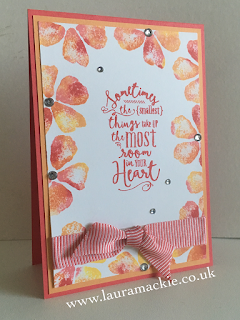 Sometimes
the {smallest}
things take up
the most
room
in YOUR
Heart
www.lauramackie.co.uk